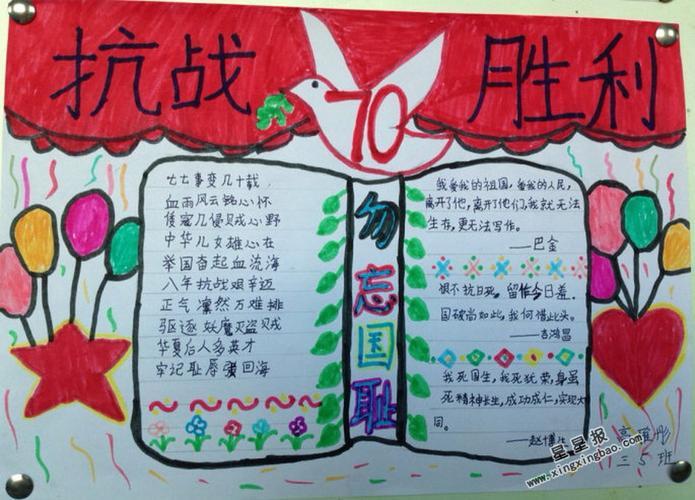 抗战 70 胜利
七七事变几十载,
血雨风云铭心怀
倭寇几侵贼心野
中华儿女雄心在
举国奋起血流海
八年抗战艰辛迈
正气凛然万难排
驱逐妖魔灭盗贼
华夏后人多英才
牢记耻辱 回海
勿忘国耻
我爱我的祖国,爱我的人民,
离开了他,离开了他们,我就无法
生存,更无法写作。
——巴金
恨不抗日死,留作今日羞。
国破尚如此,我何惜此头。
——吉鸿昌
我死国生,我死犹荣,身虽
死精神长生,成功成仁,实现大
同。
——赵博生
三5班
星星报
www.xingxingbao.com